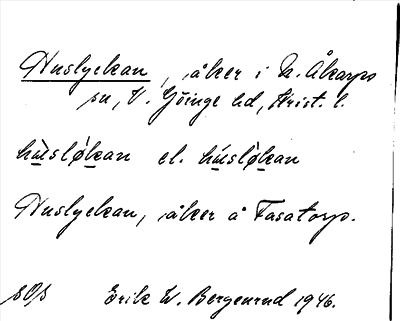 Huslyckan, åker i N. Åkarps
sn, V. Göinge hd, Krist. l.
hùslø̀kan el. hùsløkan
Huslyckan, åker å Fasatorp.
sOs Erik W. Bergenrud 1946.